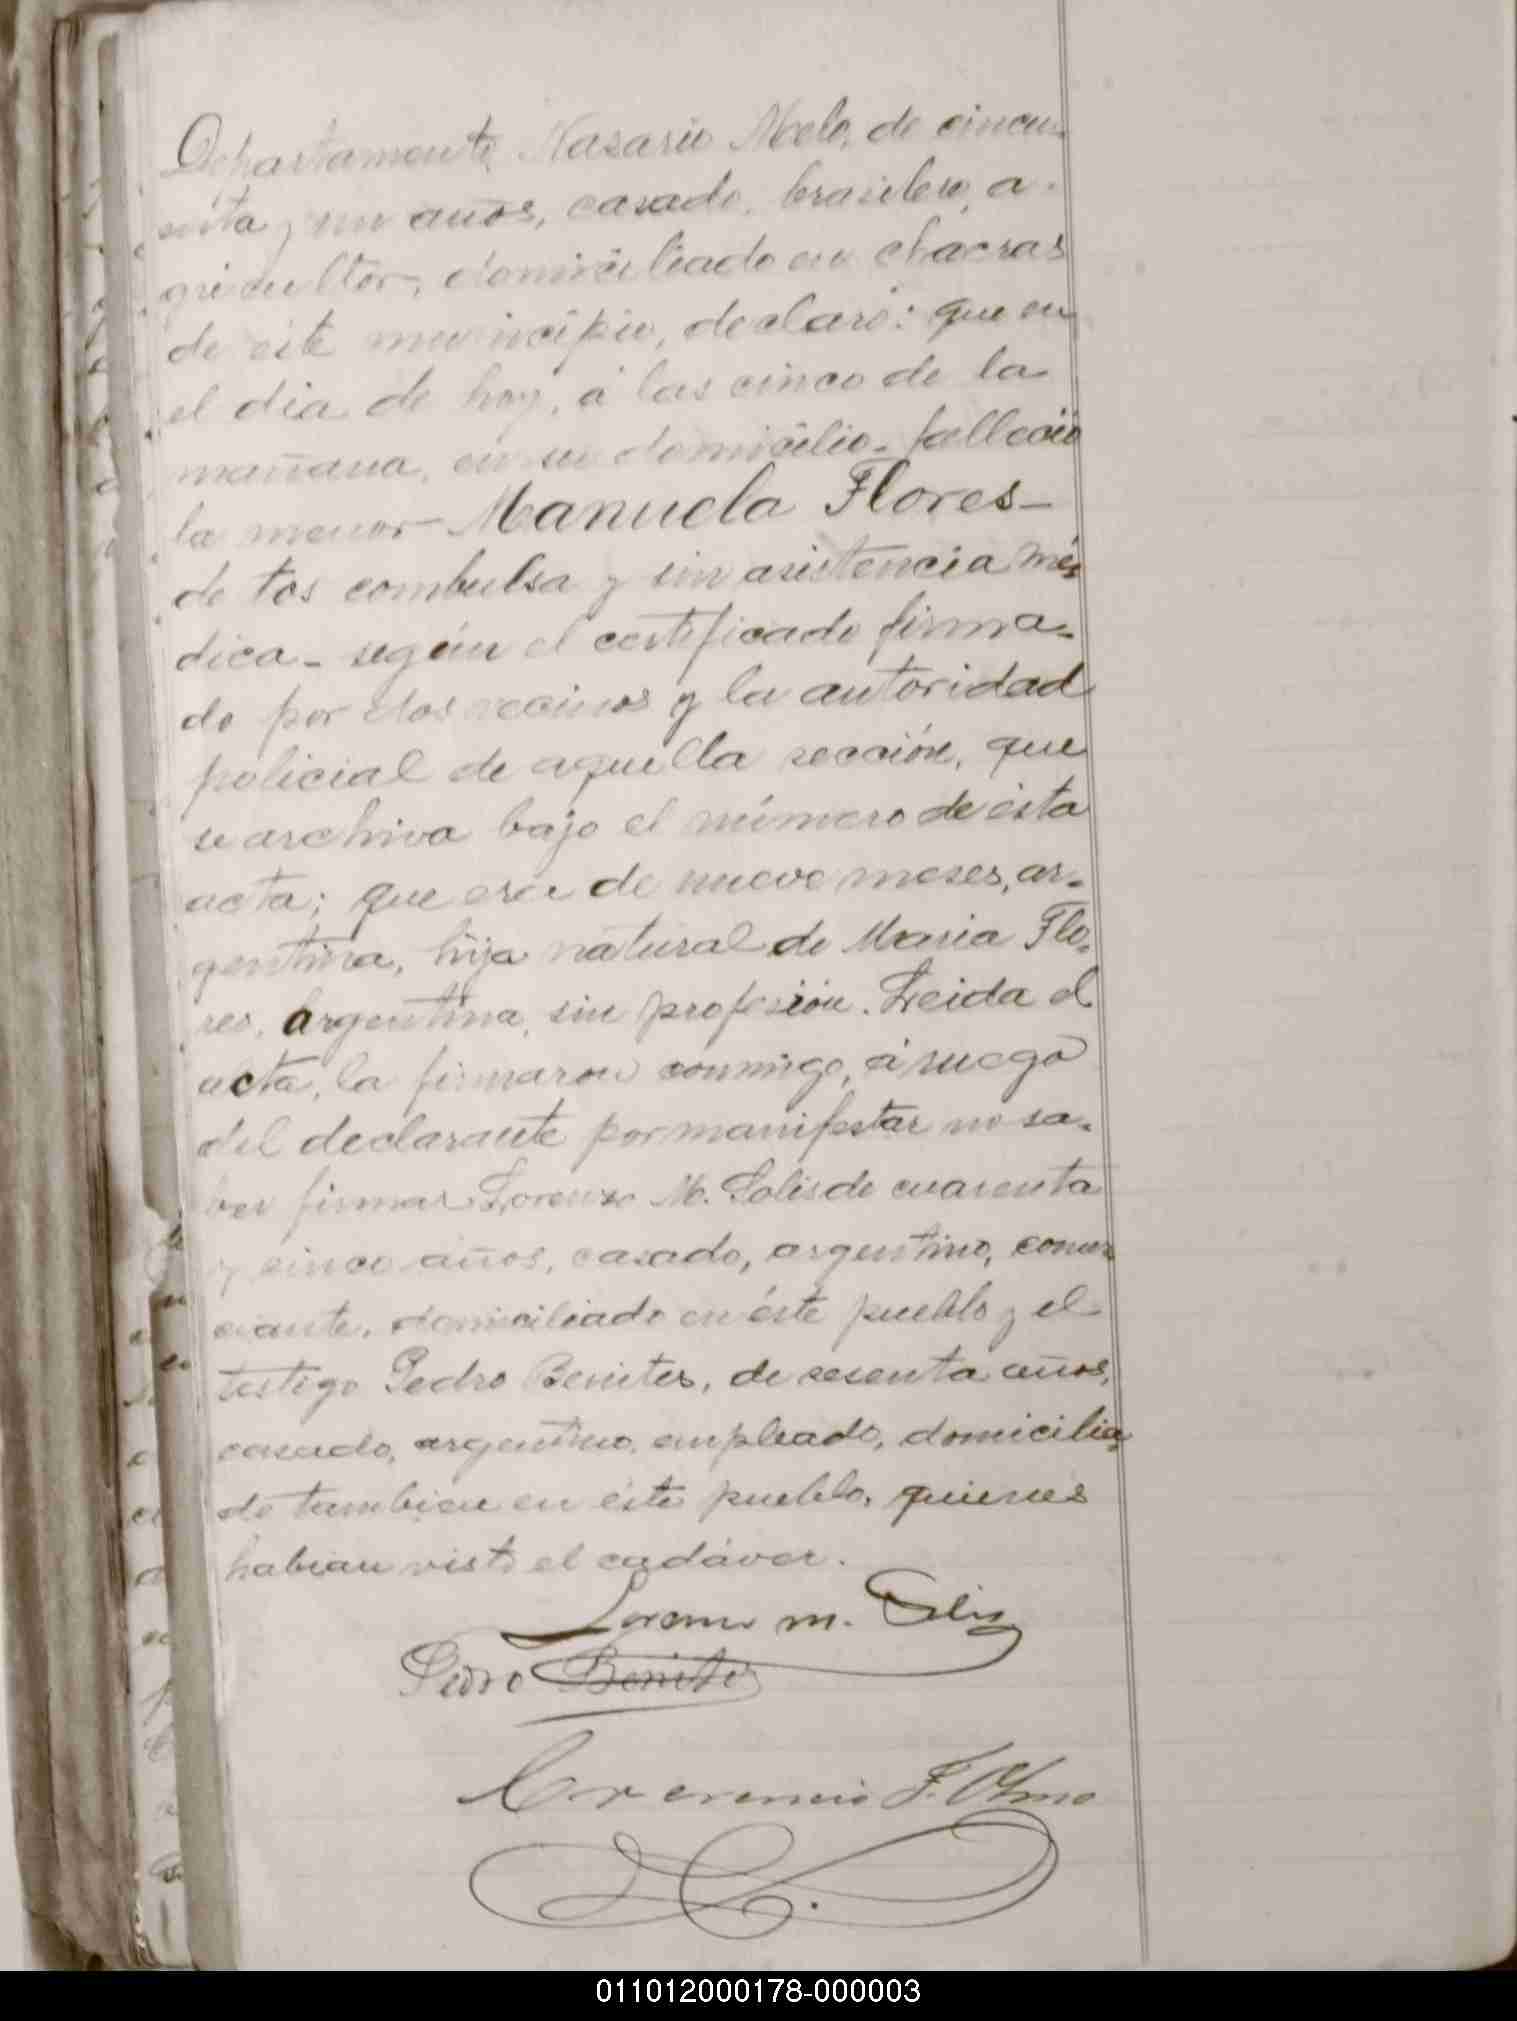 Departamento, Nasario Melo, de cincu-
enta y un años, casado, brasilero, a-
gricultor, domiciliado en chacras
de este municipio, declaró: que en
el dia de hoy, á las cinco de la
mañana, en su domicilio, falleció
la menor Manuela Flores-
de tos combulsa y sin asistencia mé-
dica- según el certificado firma-
do por dos vecinos y la autoridad
policial de aquella sección, que
se archiva bajo el número de ésta
acta; que era de nueve meses, ar-
gentina, hija natural de Maria Flo-
res, argentina, sin profesión. Leida el
acta, la firmaron conmigo, á ruego
del declarante por manifestar no sa-
ber firmar Lorenzo M. Solis de cuarenta
y cinco años, casado, argentino, comer
ciante, domiciliado en éste pueblo y el
testigo Pedro Benites, de sesenta años,
casado, argentino, empleado, domicilia-
do tambien en éste pueblo, quienes
habian visto el cadáver.
Lorenzo M. Solis
Pedro Benites
F. Olmo
011012000178-000003